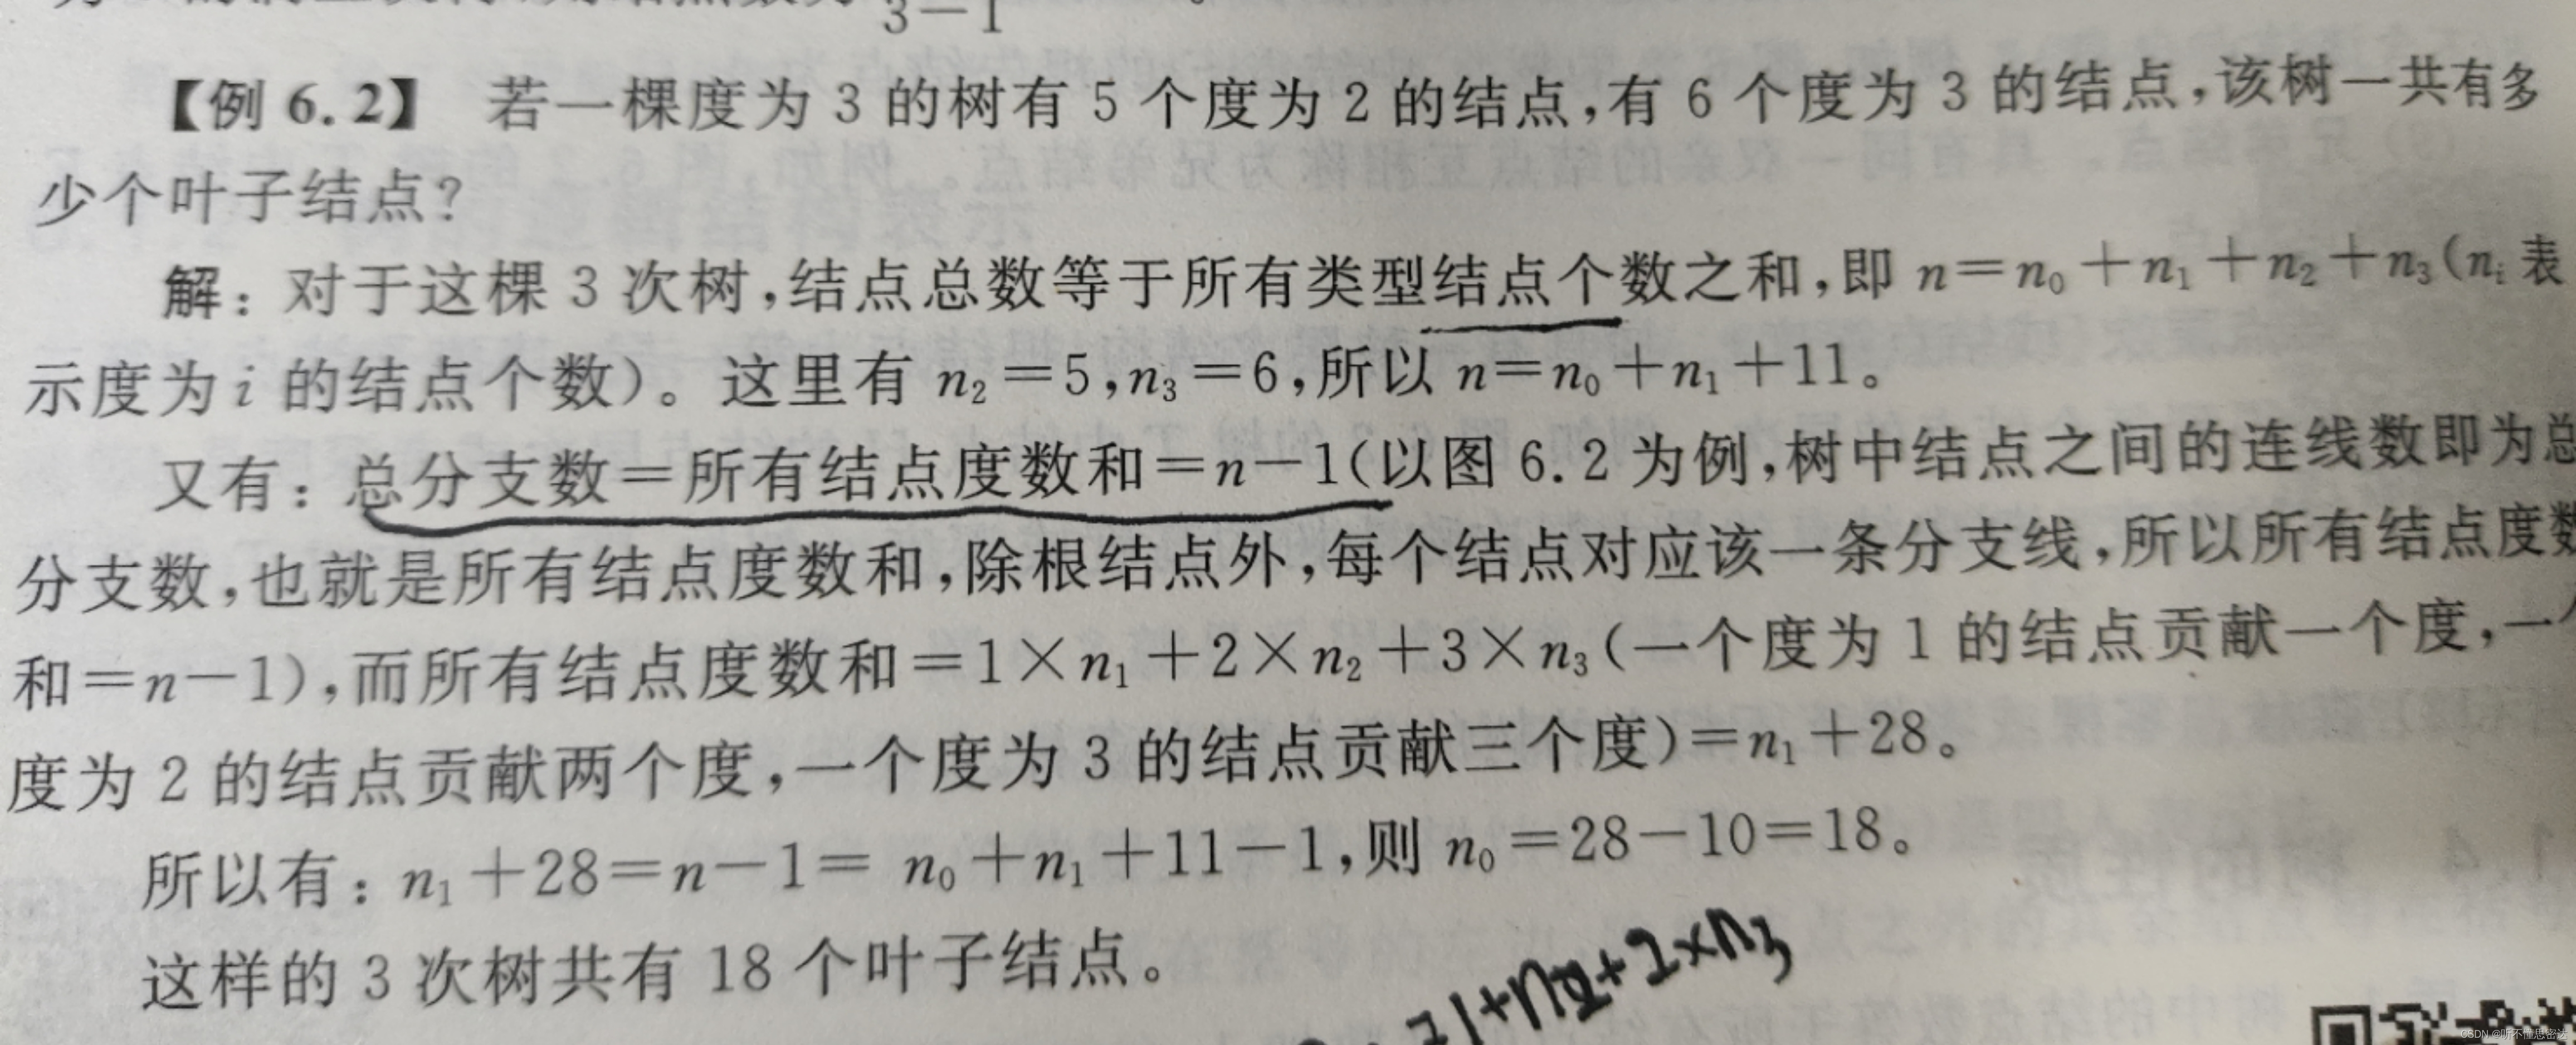 3-1
【例 6.2】 若一棵度为 3 的树有 5 个度为 2 的结点,有 6 个度为 3 的结点,该树一共有多
少个叶子结点?
解:对于这棵 3 次树,结点总数等于所有类型结点个数之和,即 n=n₀+n₁+n₂+n₃(nᵢ 表
示度为 i 的结点个数)。这里有 n₂=5,n₃=6,所以 n=n₀+n₁+11。
又有:总分支数=所有结点度数和=n-1(以图 6.2 为例,树中结点之间的连线数即为总
分支数,也就是所有结点度数和,除根结点外,每个结点对应该一条分支线,所以所有结点度数
和=n-1),而所有结点度数和=1×n₁+2×n₂+3×n₃(一个度为 1 的结点贡献一个度,一个
度为 2 的结点贡献两个度,一个度为 3 的结点贡献三个度)=n₁+28。
所以有:n₁+28=n-1= n₀+n₁+11-1,则 n₀=28-10=18。
这样的 3 次树共有 18 个叶子结点。
+2×n3
CSDN @听不懂思密达